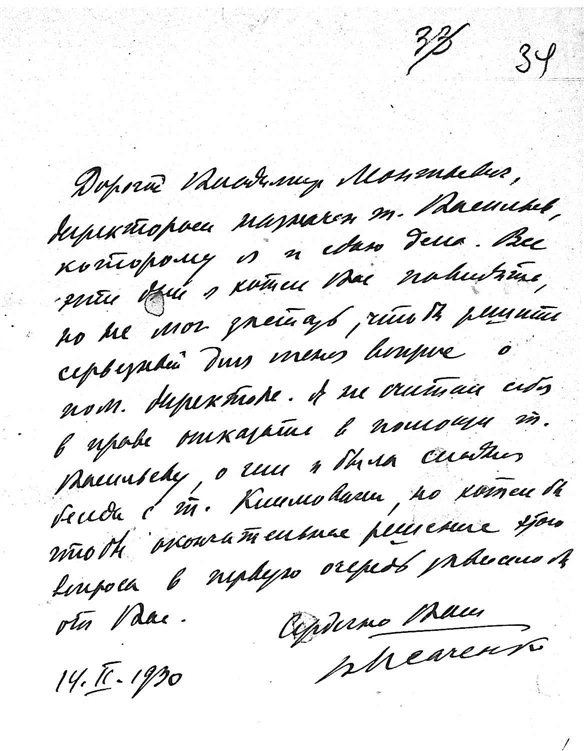 33
34
Дорогой Владимир Леонтьевич,
директором назначен т. Васильев,
которому я и сдаю дела. Все
эти дни я хотел Вас повидать,
но не мог застать, чтобы решить
серьезный для меня вопрос о
пом. директоре. Я не считаю себя
в праве отказать в помощи т.
Васильеву, о чем и была сегодня
беседа с т. Климовым, но хотел бы
чтобы окончательное решение этого
вопроса в первую очередь зависело бы
от Вас.
Сердечно Ваш
14.II.1930